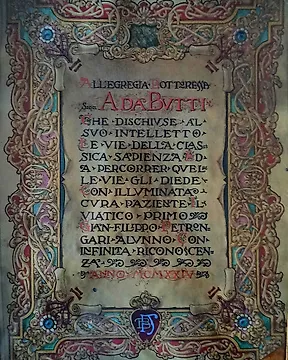 ALL'EGREGIA DOTTORESSA
Sig.na ADA BUTTI
CHE DISCHIVSE AL
SVO INTELLETTO
LE VIE DELLA CLAS
SICA SAPIENZA E D
A PERCORRER QVEL
LE VIE GLI DIEDE
CON ILLVMINATA
CVRA PAZIENTE IL
VIATICO PRIMO
GIAN FILIPPO
GARI ALVNNO CON
INFINITA RICONOSCEN
ZA
ANNO MCMXXIV